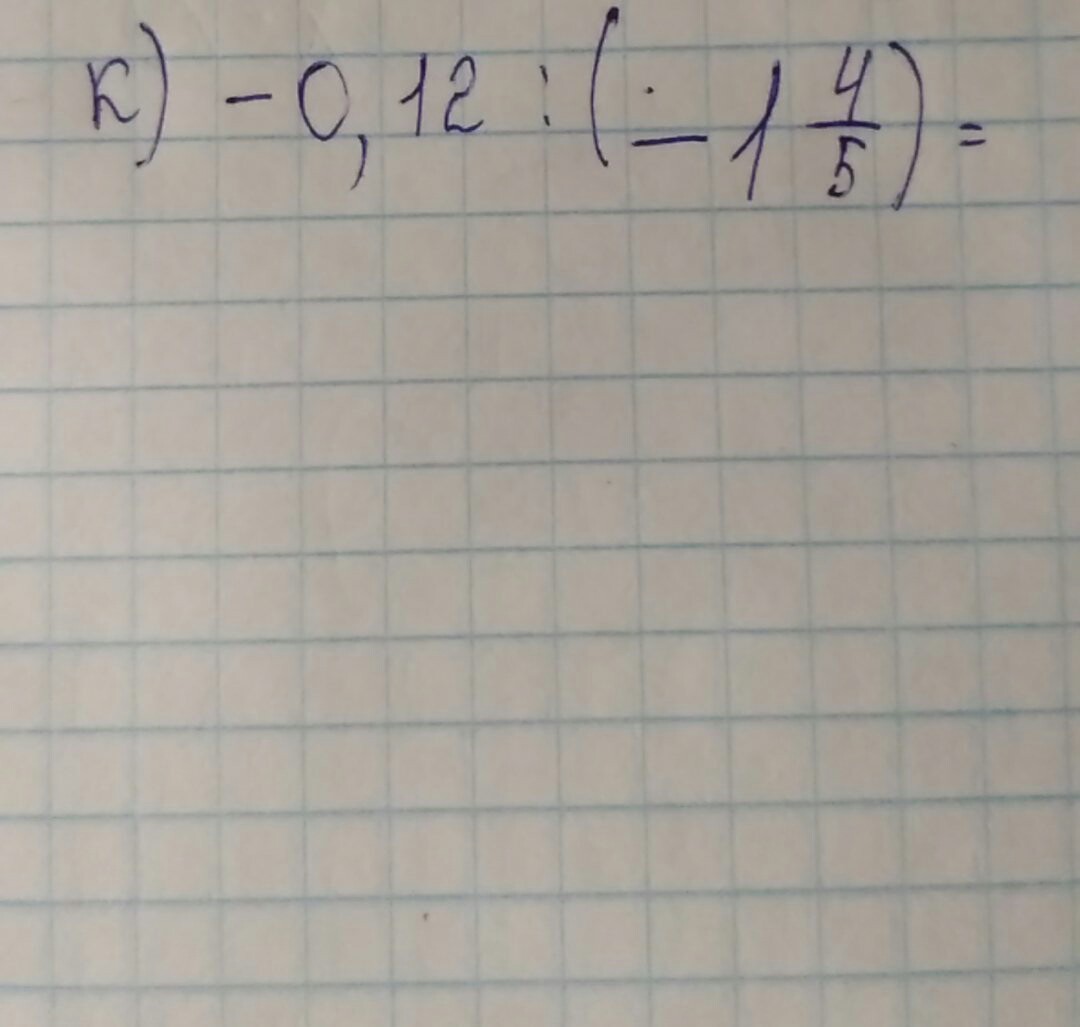 к) - 0,12 : (- 1 4/5) =